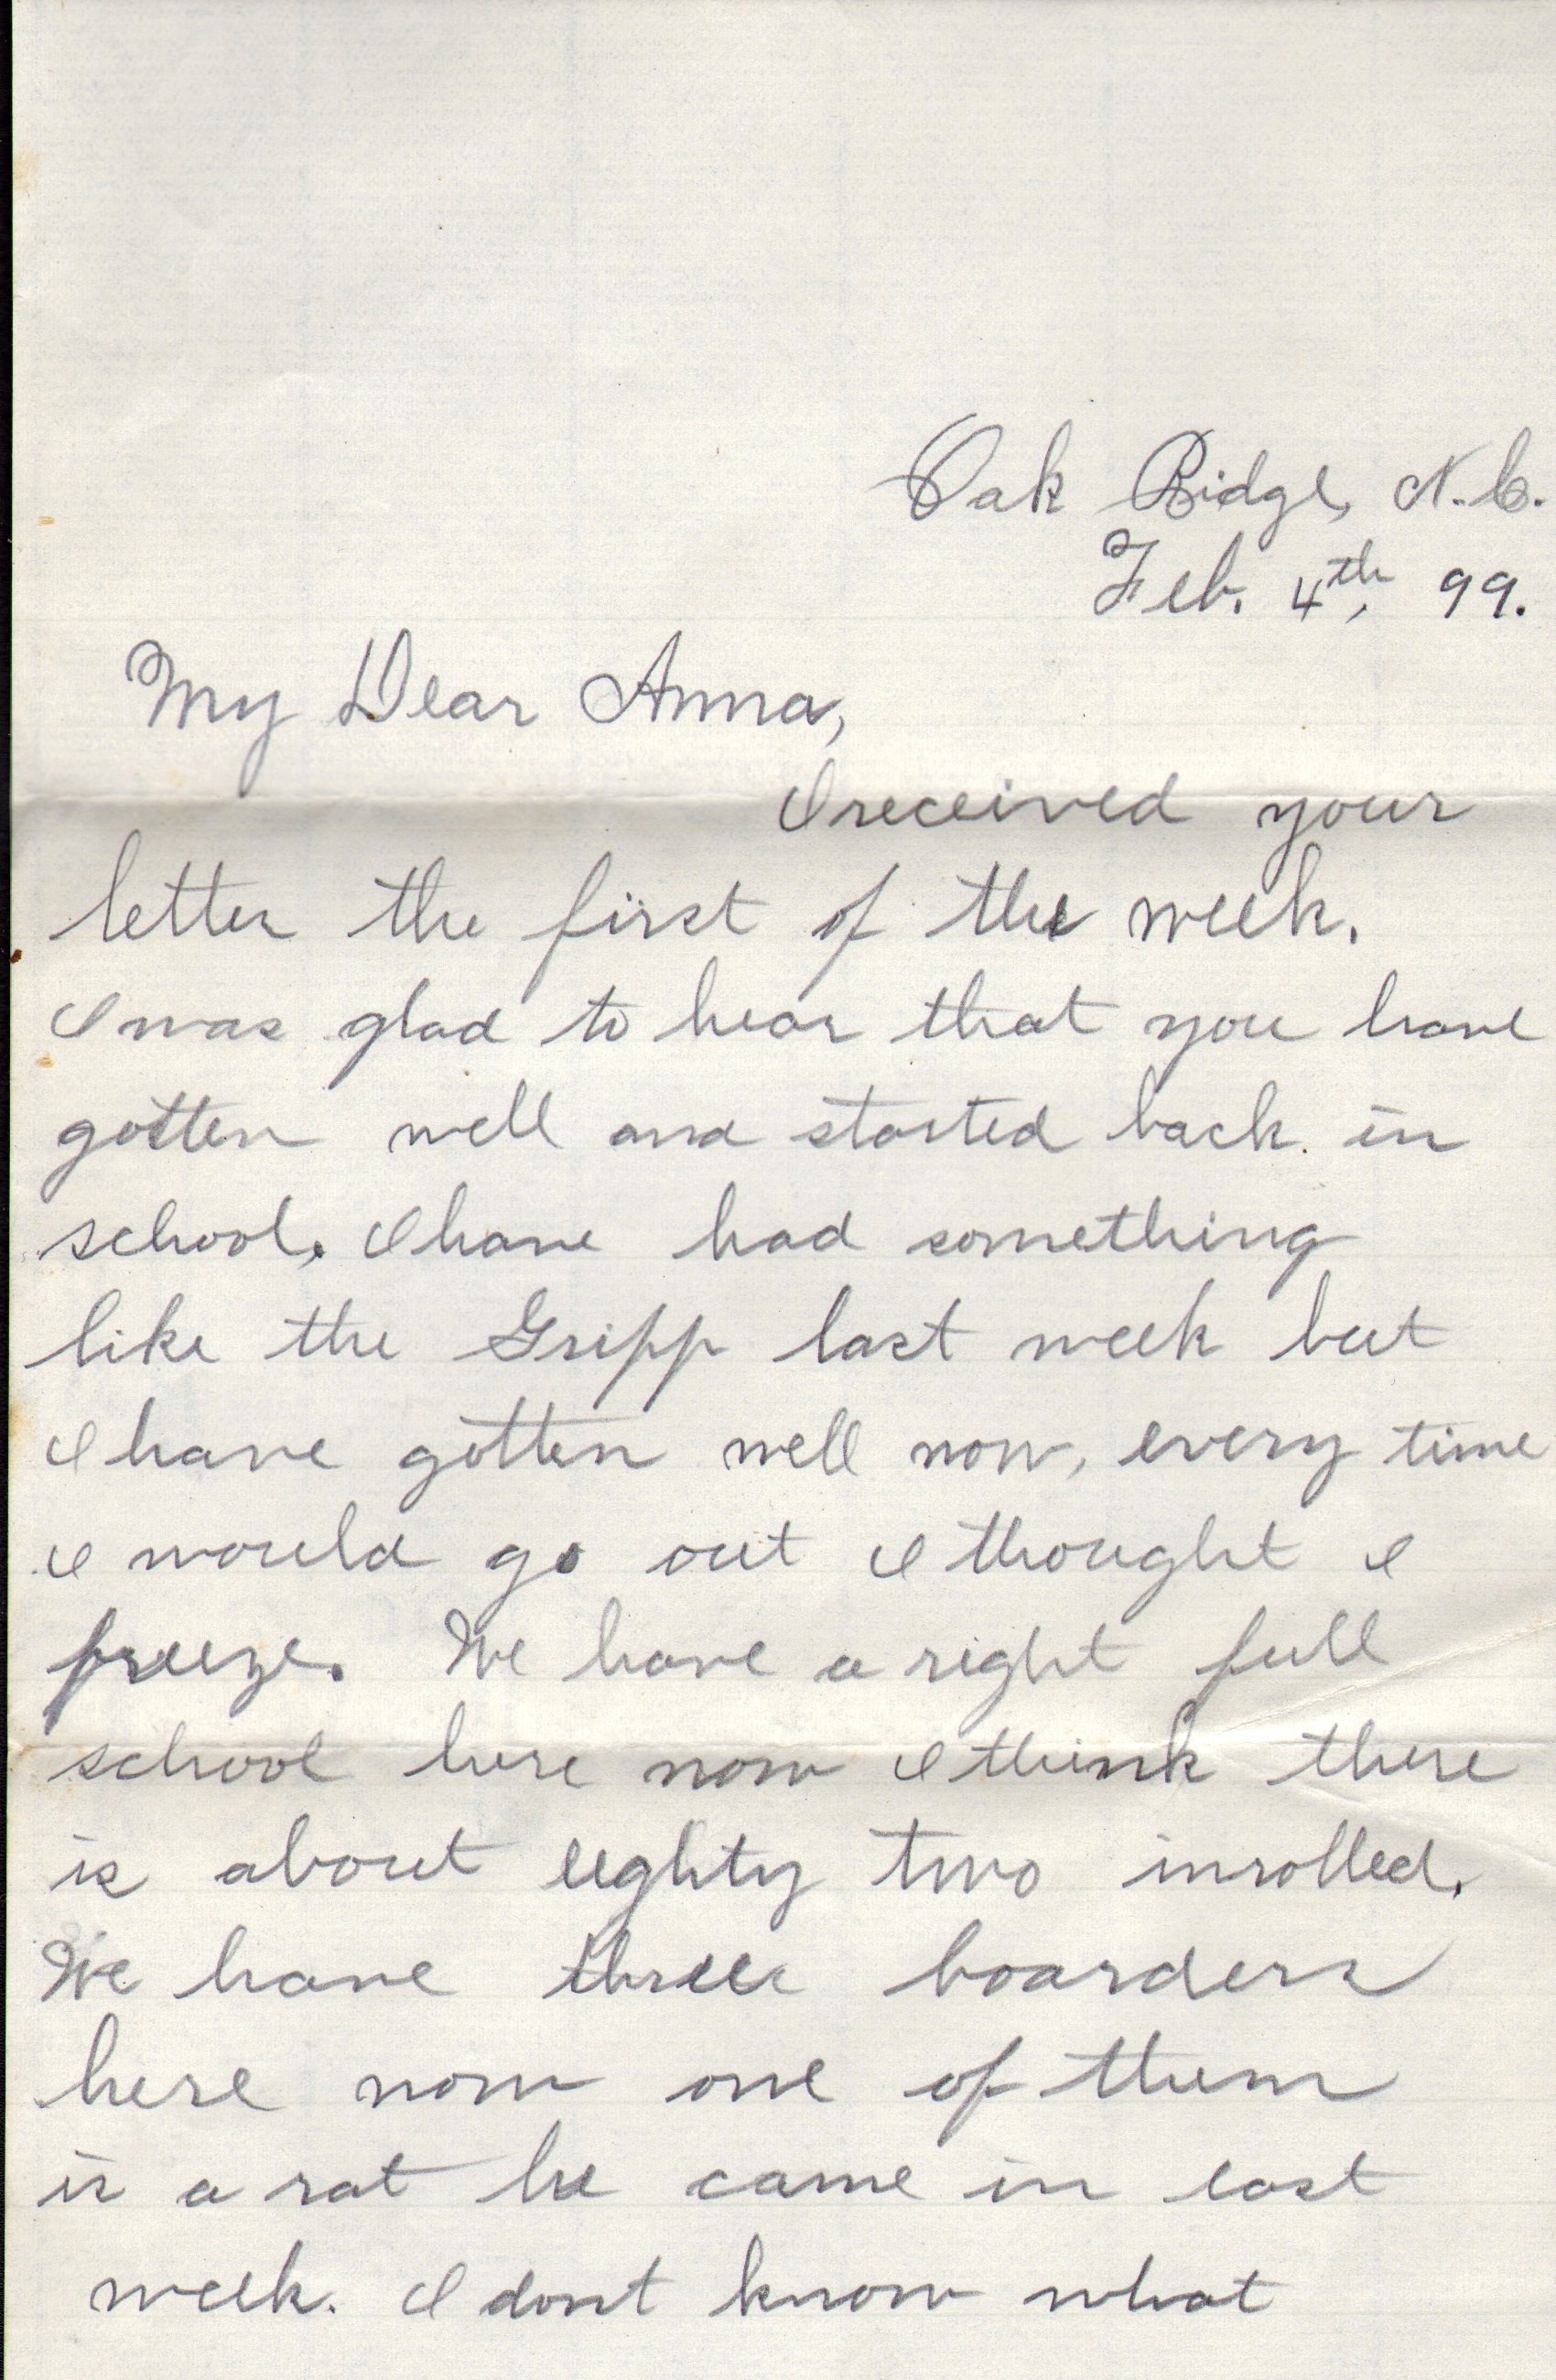 Oak Ridge, N.C.
Feb. 4th, 99.
My Dear Anna,
I received your
letter the first of the week.
I was glad to hear that you have
gotten well and started back in
school. I have had something
like the Gripp last week but
I have gotten well now, every time
I would go out I thought I
freeze. We have a right full
school here now I think there
is about eighty two inrolled.
We have three boarders
here now one of them
is a rat he came in last
week. I dont know what